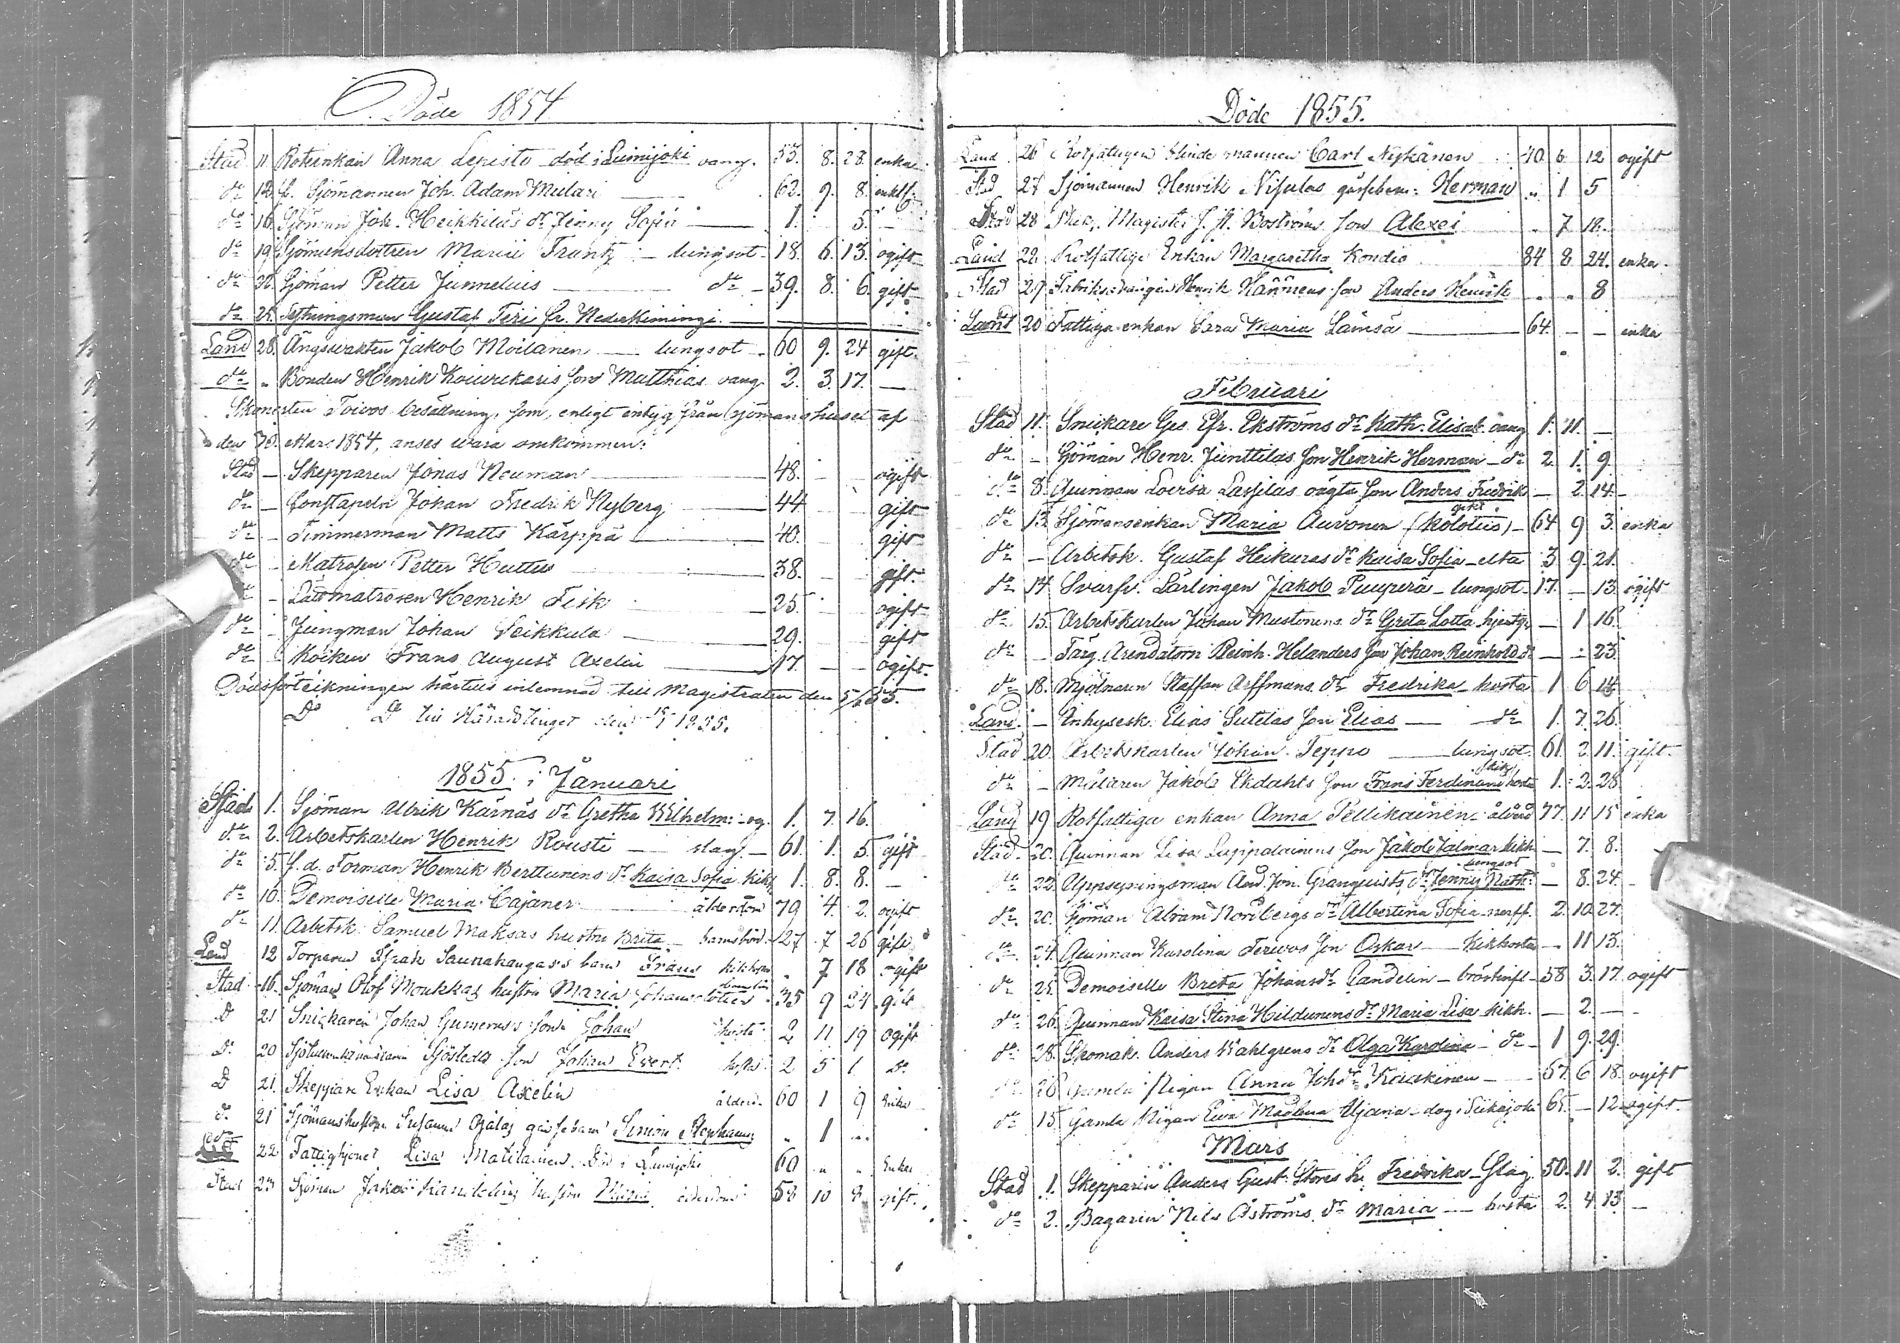 Döde 1854
Stad 11 Rotenkan Anna Lepisto död i Lumijoki vang. 53. 8. 28. enka
do 12 f. Sjömannen Joh. Adam Mulari 62. 9. 8. enkl.
do 16 Sjöman Joh. Heikkiläs dr Jenny Sofia 1. 5.
do 19 Sjömansdottren Maria Frantz lungsot 18. 6. 13. ogift
do 22. Sjöman Petter Junnelius do 39. 8. 6. gift
do 25. Sytningsman Gustaf Teri fr. Nederkimingi
Land 28. Ängsvakten Jakob Moilanen lungsot 60 9. 24 gift.
do " Bonden Henrik Koivukaris son Matthias vang 2. 3. 17. —
Skonerten Toivos besättning, som, enligt intyg från sjömanshuset af
den 30. Mars 1854, anses vara omkommen:
Stad — Skepparen Jonas Neuman 48. ogift
do — Constapeln Johan Fredrik Nyberg 44 gift
do — Timmerman Matts Kärppä 40. gift
do — Matrosen Petter Huttu 38. gift.
— Lättmatrosen Henrik Fisk 25. ogift
do — Jungman Johan Veikkula 29. gift
do — Kocken Frans August Axelin 17. ogift.
Dödsförteckningen härtills inlemnad till Magistraten den 5/1 55.
Do Do till Häradstinget den 15/1 1855.
1855. i Januari
Stad 1. Sjöman Ulrik Kärnäs dr Gretha Wilhelm: 1. 7. 16.
do 2. Arbetskarlen Henrik Rousti slag 61. 1. 5. gift
do 5. f.d. Forman Henrik Berttunens dr Kaisa Sofia kikh 1. 8. 8. —
do 10. Demoiselle Maria Cajaner ålderdom 79 4. 2. ogift
do 11. Arbetsk. Samuel Maksas hustru Brita barnsbörd 27 7 26 gift
Land 12 Torparen Isak Saunakangas's barn Frans kikhosta " 7 18 ogift
Stad 16. Sjöman Olof Moukkas hustru Maria Johansdotter 35 9 24 gift
D 21 Snickaren Johan Gumerus's son Johan hosta 2 11 19 ogift
Do 20 Sjöstedts son Johan Evert hosta 2 5 1 Do
D 21. Skeppare Enkan Lisa Axelin ålderd. 60 1 9 Enka
d. 21 Sjömanshustrun Susanna gossebarn Simon Stephanus " 1 "
22 Fattighjonet Lisa Matilainen. död i Lumijoki 60 " " Enka
Stad 23 Sjöman Jakob hustru Maria ålderdom 58 10 8. gift.
Döde 1855.
Land 26 Rotfattigen blinde mannen Carl Nykänen 40 6. 12 ogift
Stad 27 Sjömannen Henrik Nifulas gossebarn: Herman " 1 5
Stad 28 Magister J. A. Boströms son Alexei 7 18.
Land 22. Rotfattige Enkan Margaretha Kondia 84 8 24. enka.
Stad 29 Henrik Hännens son Anders Henrik " " 8
Land 20 Fattiga enkan Sara Maria Lämsä 64. — — enka
Februari
Stad 11. Snickare Gus. Efr. Ekströms dr Kath. Elisab. vang 1. 11. —
do — Sjöman Henr. Junttilas son Henrik Herman do 2. 1. 9.
do 8. Qvinnan Lovisa Lassilas oägta son Anders Fredrik — 2. 14.
do 13. Sjömansenkan Maria Auvonen (Kolotiis) gikt 64 9 3. enka
do — Arbetsk. Gustaf Heikuras dr Kaisa Sofia elta 3 9. 21.
do 14. Svarfv. Lärlingen Jakob Puuperä lungsot 17. — 13. ogift
do 15. Arbetskarlen Johan Mustonens dr Greta Lotta — 1 16.
do — Färg. Arendatorn Reinh. Helanders son Johan Reinhold do — — 23.
do 18. Mjölnaren Staffan Arffmans dr Fredrika hosta 1 6 14.
Land. — Inhysesk. Elias Sutelas son Elias do 1. 7. 26.
Stad 20. Arbetskarlen Johan Teppo lungsot 61. 2. 11. gift
do — Målaren Jakob Ekdahls son Frans Ferdinand hosta 1. 2. 28
Land 19 Rotfattiga enkan Anna Pellikainen ålderd 77. 11 15 enka
Stad 20. Qvinnan Lisa Luppolainens son Jakob Jalmar kikh. — 7. 8.
do 22. Uppsyningsman And. Jon. Granqvists dr Jenny Math. lungsot — 8. 24.
do 20. Sjöman Abram Norbergs dr Albertina Sofia nerff. 2. 10. 27.
do 24. Qvinnan Karolina Tervos son Oskar kikhosta — 11 13.
do 25. Demoiselle Breta Johansdr Sandelin bröstinfl. 58 3. 17. ogift
do 26. Qvinnan Kaisa Stina Hildunens dr Maria Lisa kikh. — 2. —
do 28. Skomak. Anders Wahlgrens dr Olga Karolina do 1 9. 29.
do 26 Gamla Pigan Anna Johdr Kaakinen 67. 6 18. ogift
do 15. Gamla Pigan Ewa Madlena Ujana dog i Siikajoki 65. — 12. ogift
Mars
Stad 1. Skepparen Anders Gust. Stores h. Fredrika Slag 50. 11 2. gift
do 2. Bagaren Nils Åströms dr Maria hosta 2. 4 13. —